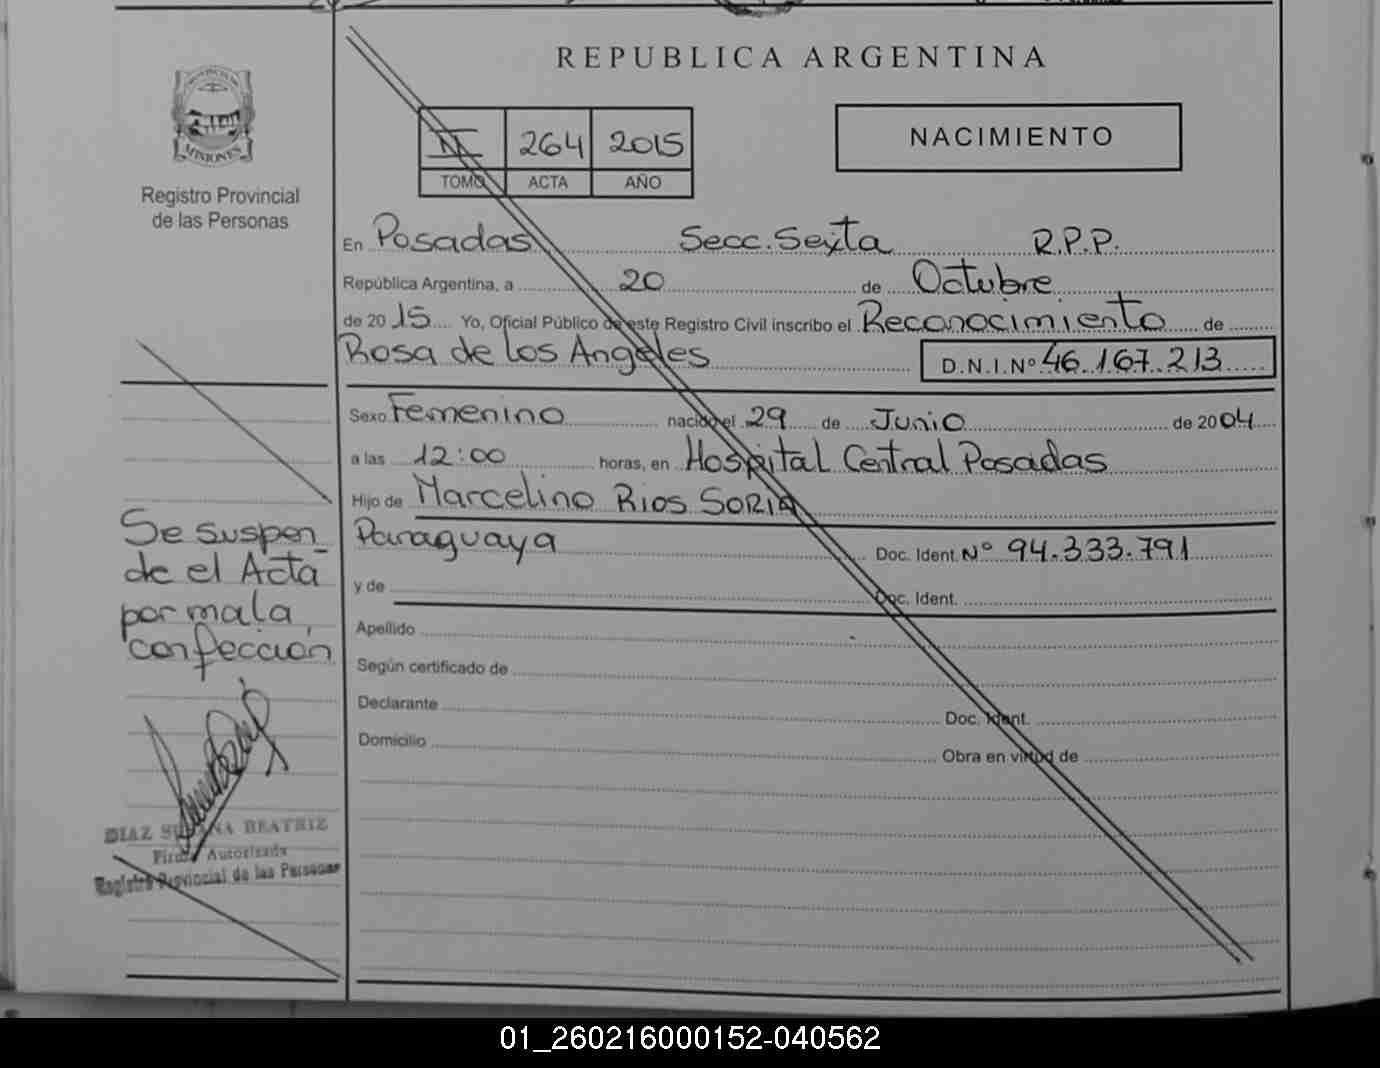 REPUBLICA ARGENTINA
PROVINCIA DE
MISIONES
Registro Provincial
de las Personas
II 264 2015
TOMO ACTA AÑO
NACIMIENTO
En Posadas Secc. Sexta R.P.P.
República Argentina, a 20 de Octubre
de 2015 Yo, Oficial Público de este Registro Civil inscribo el Reconocimiento de
Rosa de los Angeles D.N.I. Nº 46.167.213
Sexo Femenino nacido el 29 de Junio de 2004
a las 12:00 horas, en Hospital Central Posadas
Hijo de Marcelino Rios SORIA
Paraguaya Doc. Ident. Nº 94.333.791
y de Doc. Ident.
Apellido
Según certificado de
Declarante Doc. Ident.
Domicilio Obra en virtud de
Se suspen
de el Acta
por mala
confección
DIAZ SUSANA BEATRIZ
Firma Autorizada
Registro Provincial de las Personas
01_260216000152-040562